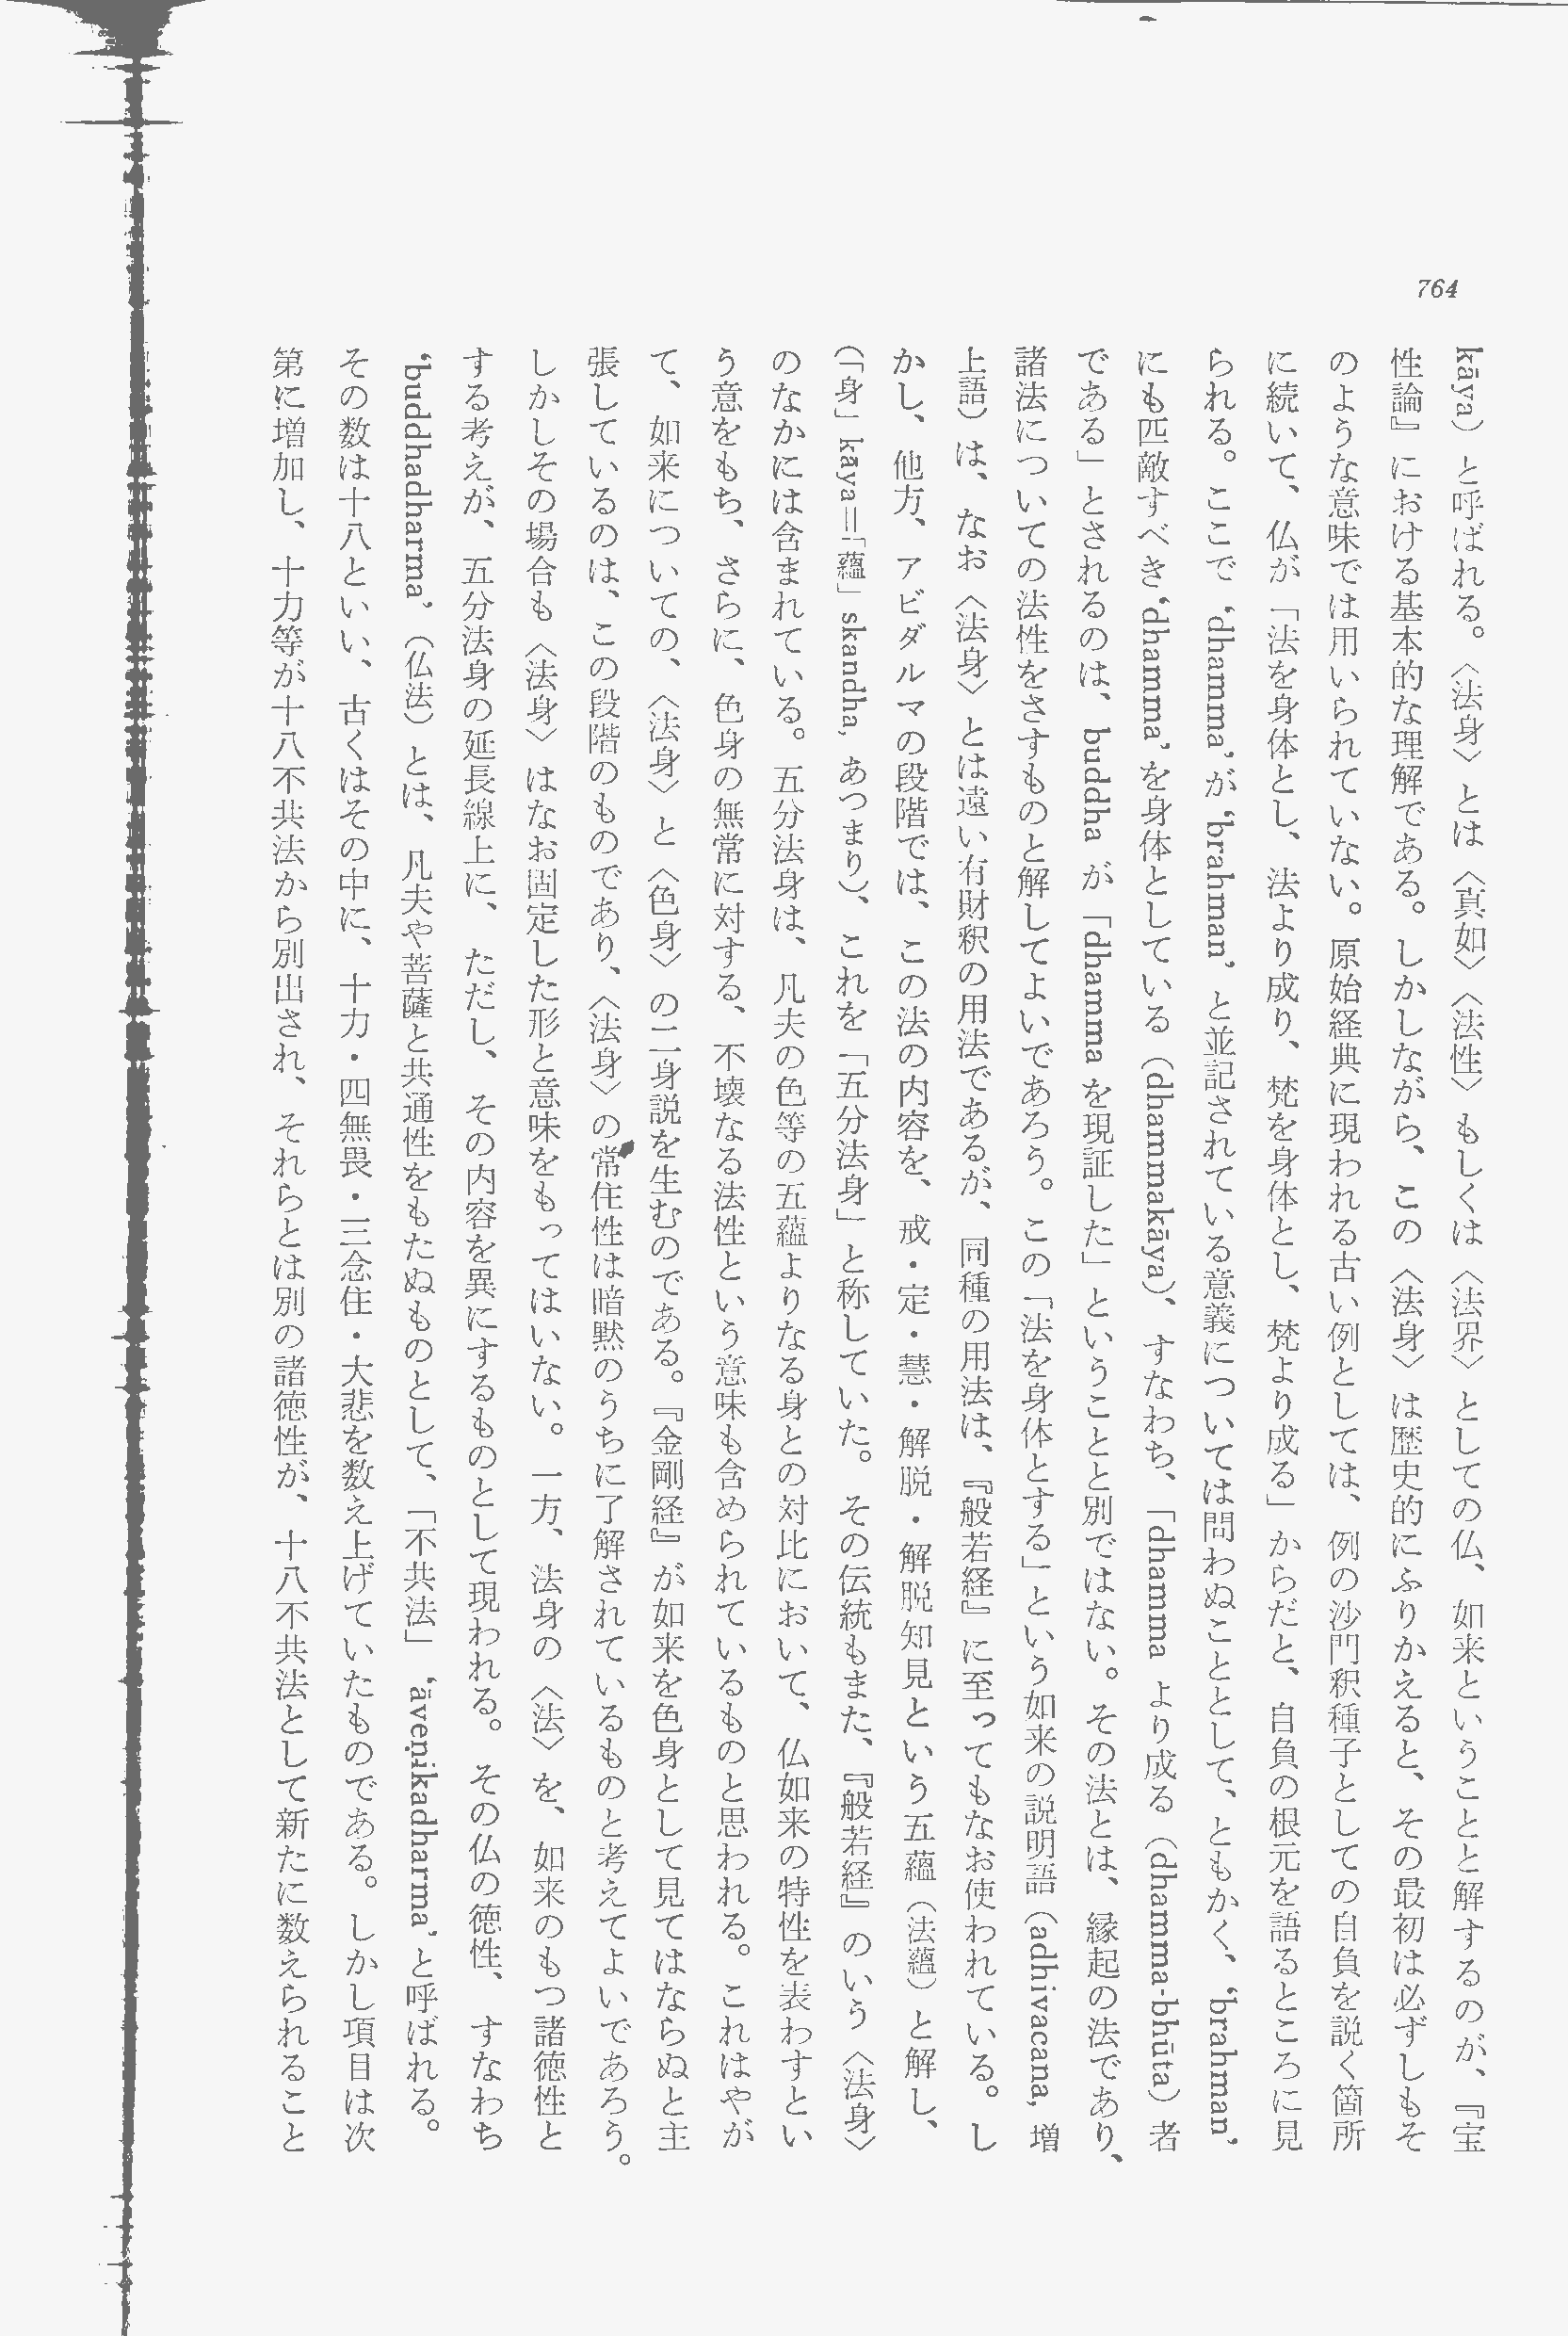 764
kāya）と呼ばれる。〈法身〉とは〈真如〉〈法性〉もしくは〈法界〉としての仏、如来ということと解するのが、『宝
性論』における基本的な理解である。しかしながら、この〈法身〉は歴史的にふりかえると、その最初は必ずしもそ
のような意味では用いられていない。原始経典に現われる古い例としては、例の沙門釈種子としての自負を説く箇所
に続いて、仏が「法を身体とし、法より成り、梵を身体とし、梵より成る」からだと、自負の根元を語るところに見
られる。ここで ‘dhamma’ が ‘brahman’ と並記されている意義については問わぬこととして、ともかく、‘brahman’
にも匹敵すべき ‘dhamma’ を身体としている（dhammakāya）、すなわち、「dhamma より成る（dhamma-bhūta）者
である」とされるのは、buddha が「dhamma を現証した」ということと別ではない。その法とは、縁起の法であり、
諸法についての法性をさすものと解してよいであろう。この「法を身体とする」という如来の説明語（adhivacana, 増
上語）は、なお〈法身〉とは遠い有財釈の用法であるが、同種の用法は、『般若経』に至ってもなお使われている。し
かし、他方、アビダルマの段階では、この法の内容を、戒・定・慧・解脱・解脱知見という五蘊（法蘊）と解し、
（「身」kāya＝「蘊」skandha, あつまり）、これを「五分法身」と称していた。その伝統もまた、『般若経』のいう〈法身〉
のなかには含まれている。五分法身は、凡夫の色等の五蘊よりなる身との対比において、仏如来の特性を表わすとい
う意をもち、さらに、色身の無常に対する、不壊なる法性という意味も含められているものと思われる。これはやが
て、如来についての、〈法身〉と〈色身〉の二身説を生むのである。『金剛経』が如来を色身として見てはならぬと主
張しているのは、この段階のものであり、〈法身〉の常住性は暗黙のうちに了解されているものと考えてよいであろう。
しかしその場合も〈法身〉はなお固定した形と意味をもってはいない。一方、法身の〈法〉を、如来のもつ諸徳性と
する考えが、五分法身の延長線上に、ただし、その内容を異にするものとして現われる。その仏の徳性、すなわち
‘buddhadharma’（仏法）とは、凡夫や菩薩と共通性をもたぬものとして、「不共法」‘āveṇikadharma’ と呼ばれる。
その数は十八といい、古くはその中に、十力・四無畏・三念住・大悲を数え上げていたものである。しかし項目は次
第に増加し、十力等が十八不共法から別出され、それらとは別の諸徳性が、十八不共法として新たに数えられること